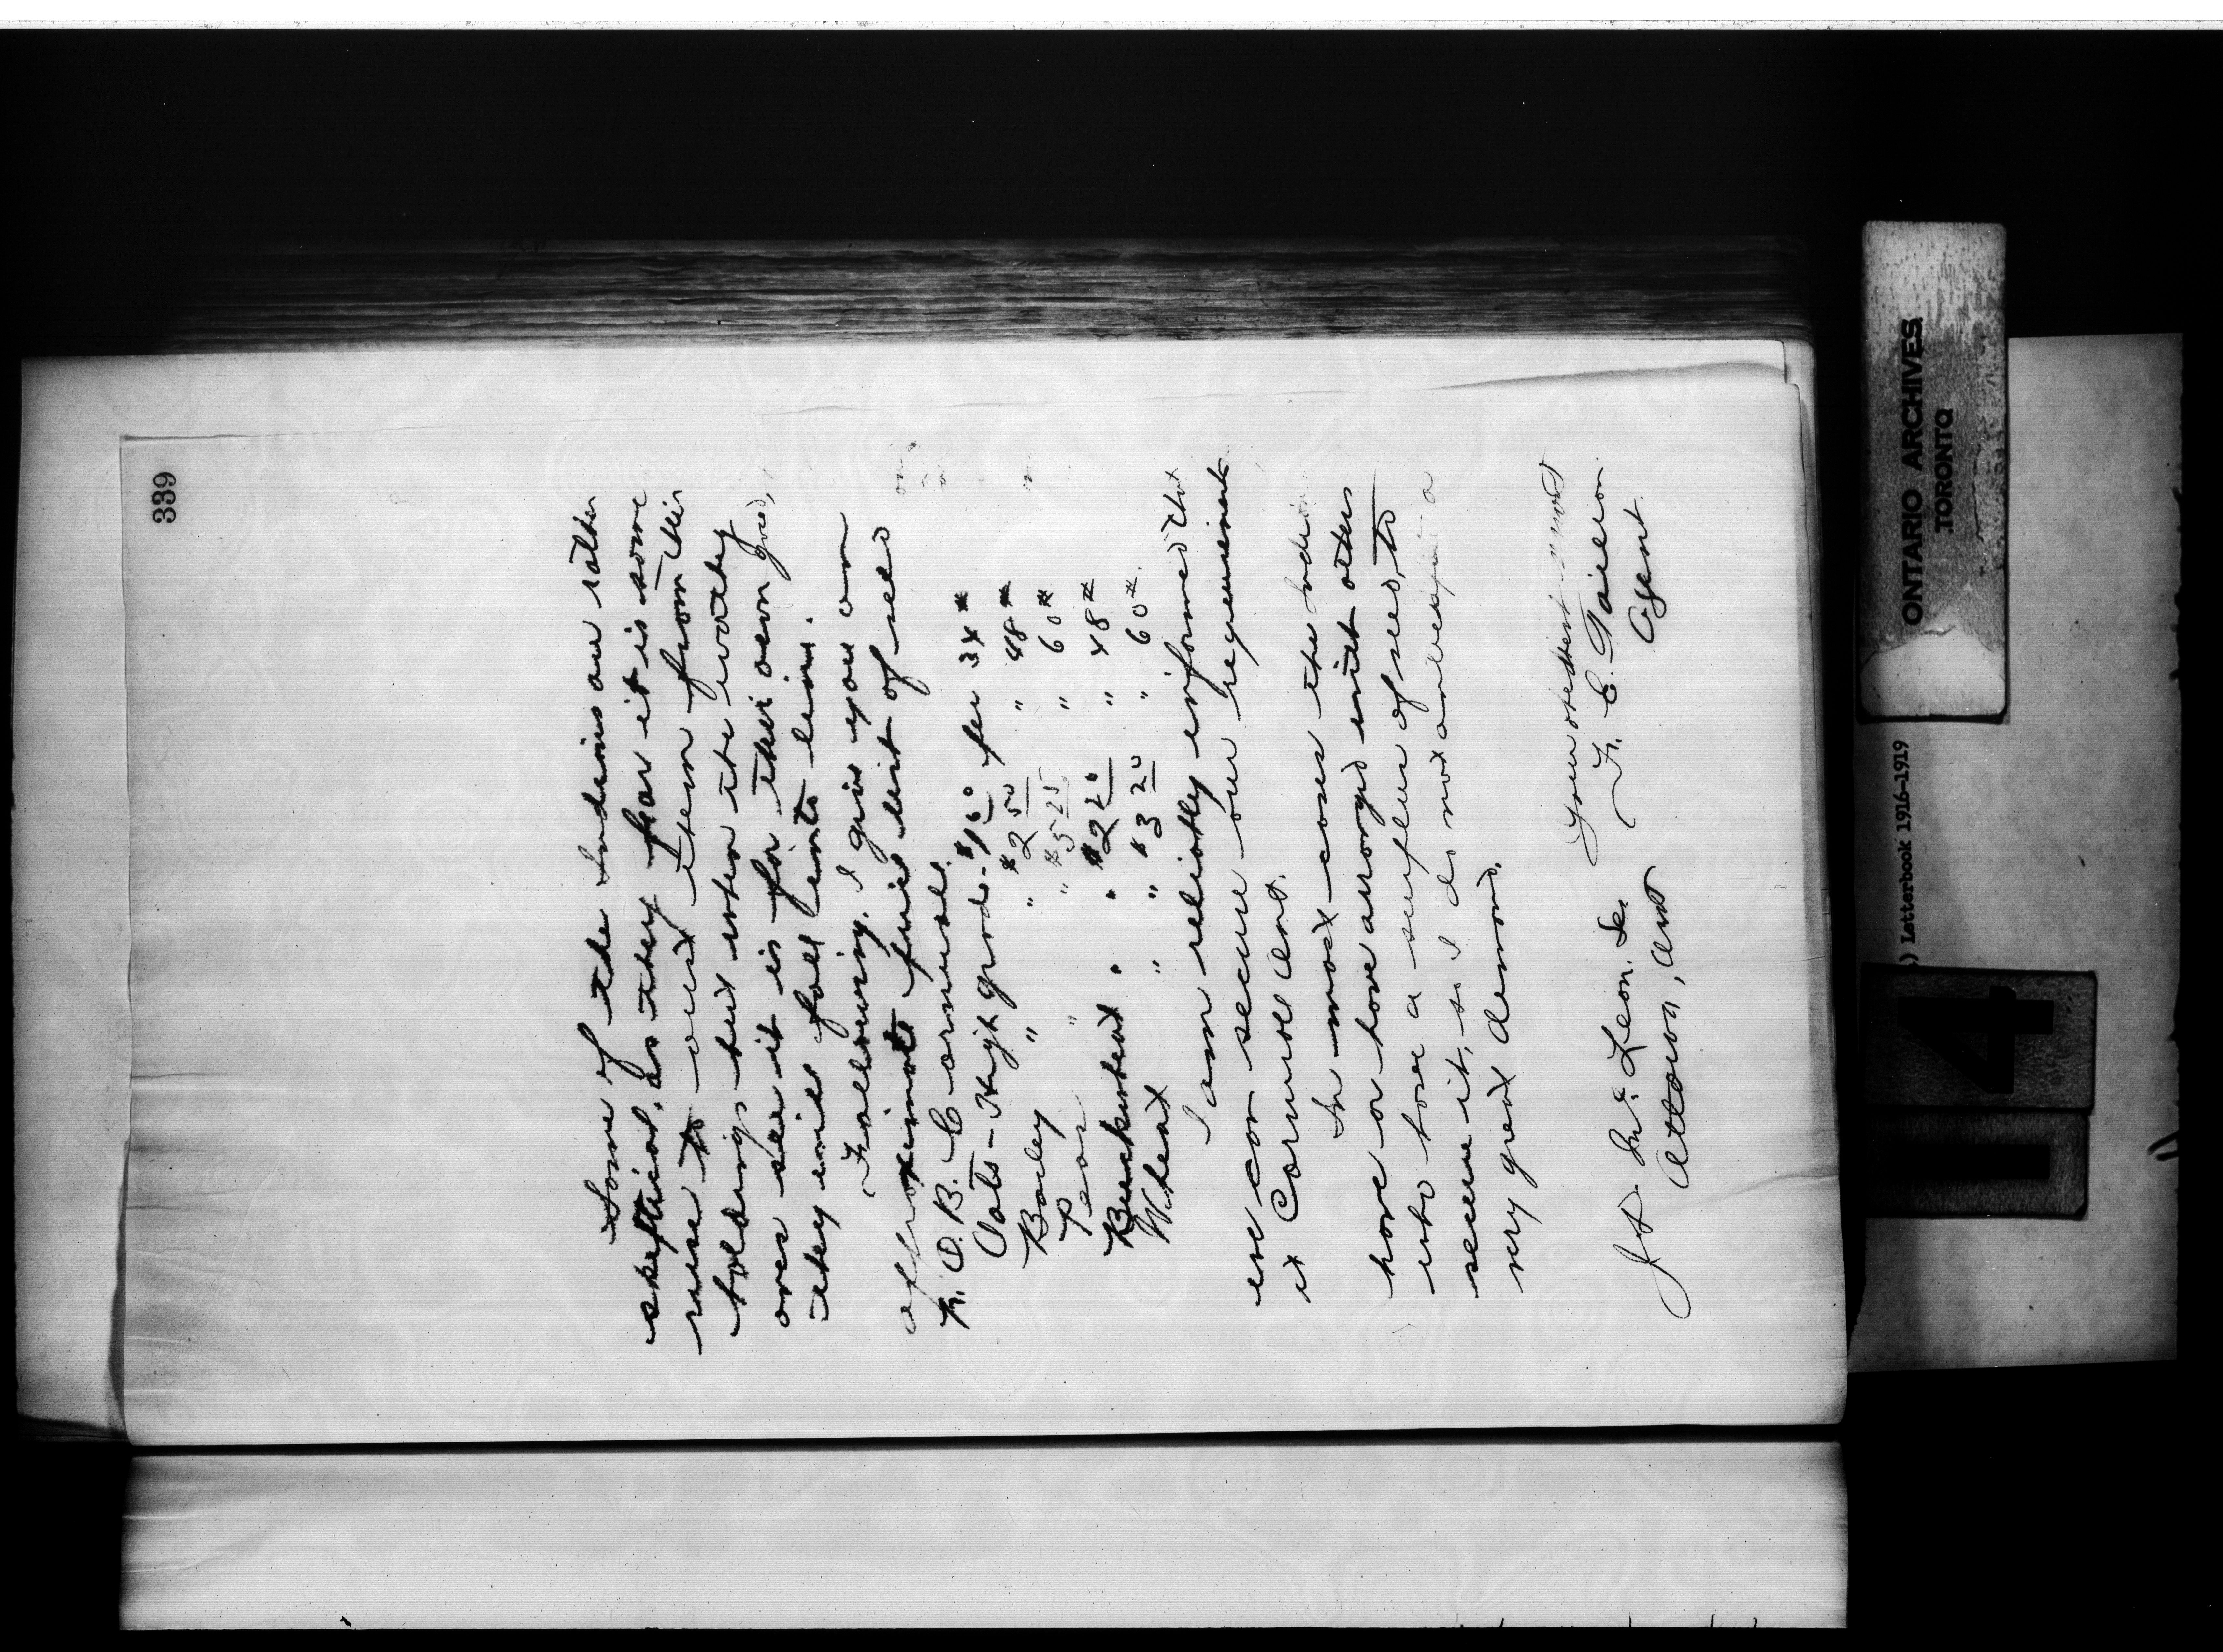 339
Some of the Indians are rather
skeptical, as they fear it is some
ruse to oust them from their
holdings but when the worthy
ones see it is for their own good,
they will fall into line.
Following, I give you an
approximate price list of seed
F. O. B. Cornwall.
Oats - High grade - $1.60 per 34 #
Barley " " $2 50 " 48 #
Peas " " $5 25 " 60 #
Buckwheat " " $2 20 " 48 #
Wheat " " $3 20 " 60 #
I am reliably informed that
we can secure our requirements
at Cornwall Ont.
In most cases the Indians
have or have arranged with others
who have a surplus of seed, to
secure it, so I do not anticipate a
very great demand.
Your obedient servant
F. E. Taillon
Agent.
J. D. McLean. Sec.
Ottawa, Ont
ONTARIO ARCHIVES
TORONTO
) Letterbook 1916-1919
4